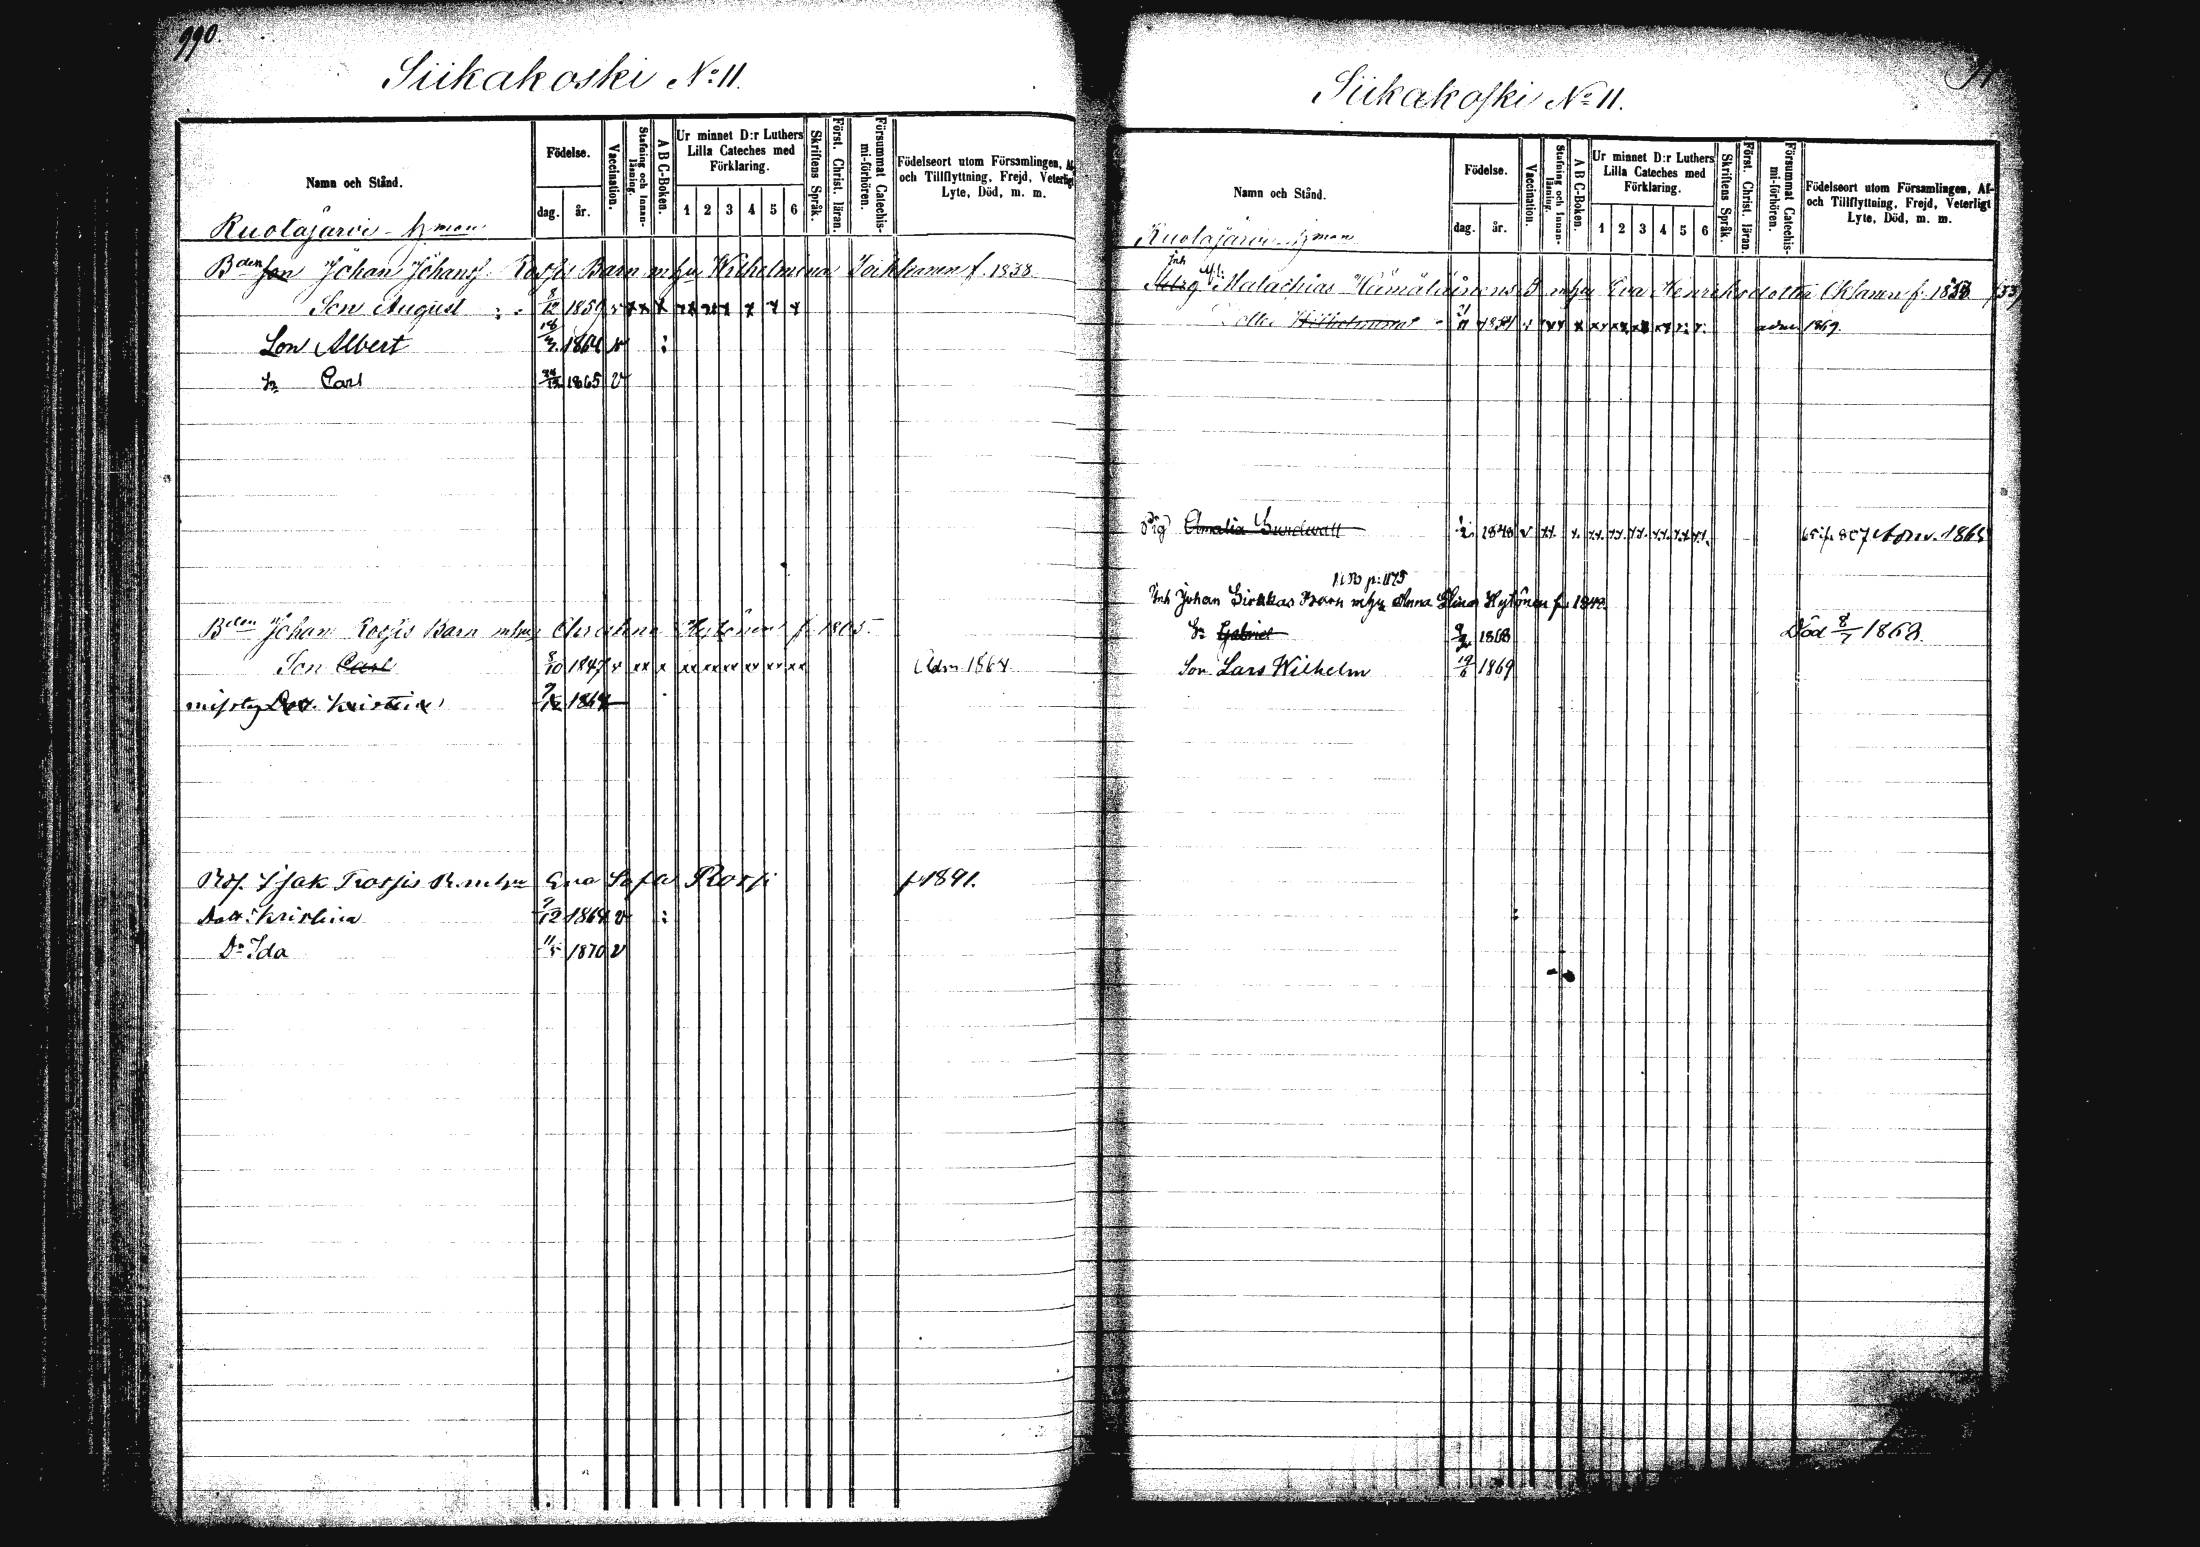 990.
Siikakoski No 11.
Namn och Stånd.
Födelse.
dag. år.
Vaccination.
Stafning och Innanläsning.
A B C-Boken.
Ur minnet D:r Luthers Lilla Cateches med Förklaring.
1 2 3 4 5 6
Skriftens Språk.
Först. Christ. läran.
Försummat Catechismi-förhören.
Födelseort utom Församlingen, Af- och Tillflyttning, Frejd, Veterligt Lyte, Död, m. m.
Ruotajärvi
Bden son Johan Johans. Rossis Barn m hu Wilhelmina Toikkanen f. 1838
Son August 8/12 1859 v
Son Albert 18/7 1861 v
Carl 24/12 1865 v
Bden Johan Rossis Barn m hu Christina Hytönen f. 1805.
Son Carl 8/10 1847 v xx x xx xx xx xx xx xx Adm 1864
Dott. Kristina 9/12 1864
Isak Rossis B. m hu Eva Sofia Rossi f. 1841.
Dott: Kristina 9/12 1864 v
Do Ida 11/5 1870 v
Siikakoski No 11.
Namn och Stånd.
Födelse.
dag. år.
Vaccination.
Stafning och Innanläsning.
A B C-Boken.
Ur minnet D:r Luthers Lilla Cateches med Förklaring.
1 2 3 4 5 6
Skriftens Språk.
Först. Christ. läran.
Försummat Catechismi-förhören.
Födelseort utom Församlingen, Af- och Tillflyttning, Frejd, Veterligt Lyte, Död, m. m.
Ruotajärvi
Inh Malachias Hämäläinens B m hu Eva Henriksdotter
Wilhelmina 21/11 adm 1869.
Pig Amalia Sundwall 1848 v Adm. 1865
Inh Johan Sirkkas Barn m hu Anna Elina Hytönen f. 1842
Gabriel 1868 Död 8/7 1868.
Son Lars Wilhelm 19/6 1869